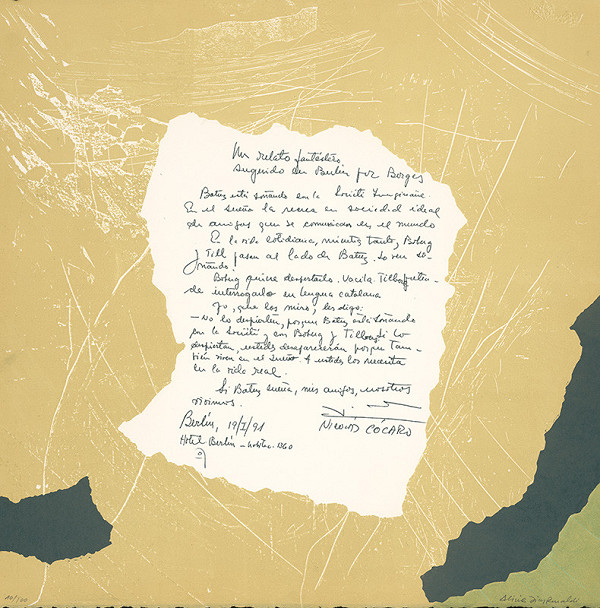 Un relato fantástico
sugerido en Berlín por Borges
Batuz está soñando en la Société Imaginaire.
En el sueño la reúne en sociedad ideal
de amigos que se comunican en el mundo
En la vida cotidiana, mientras tanto, Boberg
y Till pasan al lado de Batuz. Lo ven so-
ñando.
Boberg quiere despertarlo. Vacila. Till
de interrogarlo en lengua catalana
Yo, que los miro, les digo:
- No lo despierten, porque Batuz está soñando
en la Société y con Boberg y Till. Si lo
despiertan, ustedes desaparecerán porque tam-
bién viven en el sueño. A ustedes los necesita
en la vida real.
Si Batuz sueña, mis amigos, nosotros
vivimos.
Berlín, 19/I/91
NICOLÁS CÓCARO
Hotel Berlín - 1360
10/100
Alicia Díaz Rinaldi